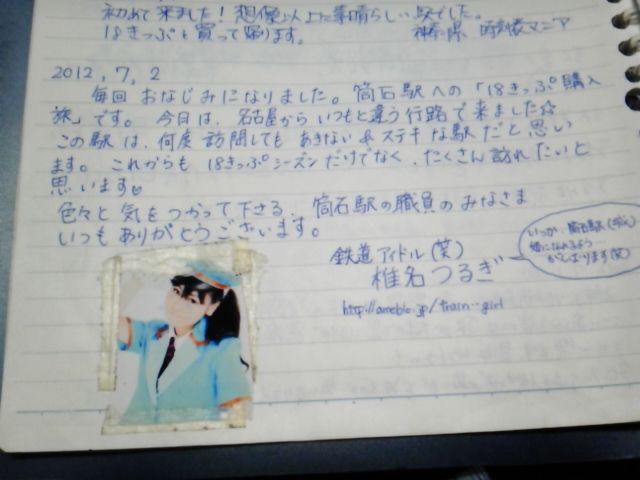 初めて来ました！想像以上に素晴らしい駅でした。
18きっぷを買って帰ります。 神奈川県 時刻表マニア
2012,7,2
毎回おなじみになりました。筒石駅への「18きっぷ購入
旅」です。今日は、名古屋からいつもと違う行路で来ました☆
この駅は、何度訪問してもあきない&ステキな駅だと思い
ます。これからも18きっぷシーズンだけでなく、たくさん訪れたいと
思います♥
色々と気をつかって下さる、筒石駅の職員のみなさま
いつもありがとうございます。
鉄道アイドル(笑)
椎名つるぎ
http://ameblo.jp/train--girl
いつか、筒石駅
がんばります(笑)